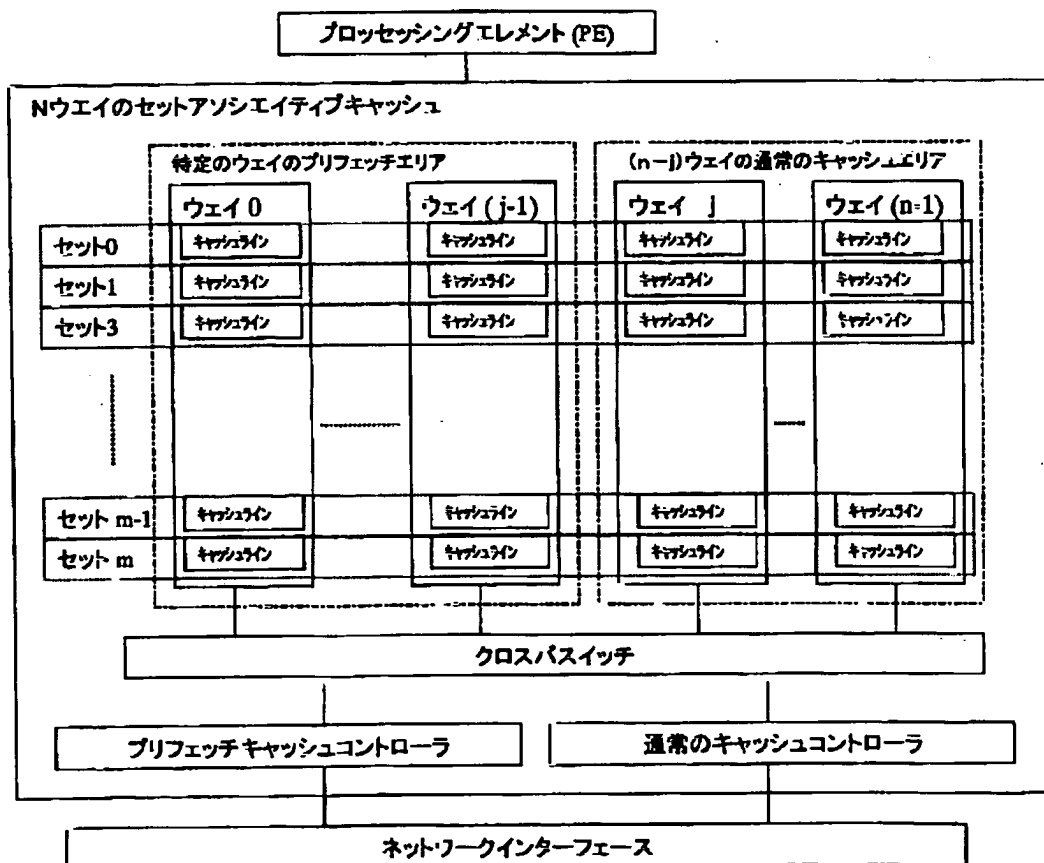 プロッセッシングエレメント(PE)
Nウエイのセットアソシエイティブキャッシュ
特定のウェイのプリフェッチエリア
(n-j)ウェイの通常のキャッシュエリア
ウェイ 0
ウェイ (j-1)
ウェイ j
ウェイ (n-1)
セット0
キャッシュライン
キャッシュライン
キャッシュライン
キャッシュライン
セット1
キャッシュライン
キャッシュライン
キャッシュライン
キャッシュライン
セット3
キャッシュライン
キャッシュライン
キャッシュライン
キャッシュライン
セット m-1
キャッシュライン
キャッシュライン
キャッシュライン
キャッシュライン
セット m
キャッシュライン
キャッシュライン
キャッシュライン
キャッシュライン
クロスバスイッチ
プリフェッチキャッシュコントローラ
通常のキャッシュコントローラ
ネットワークインターフェース